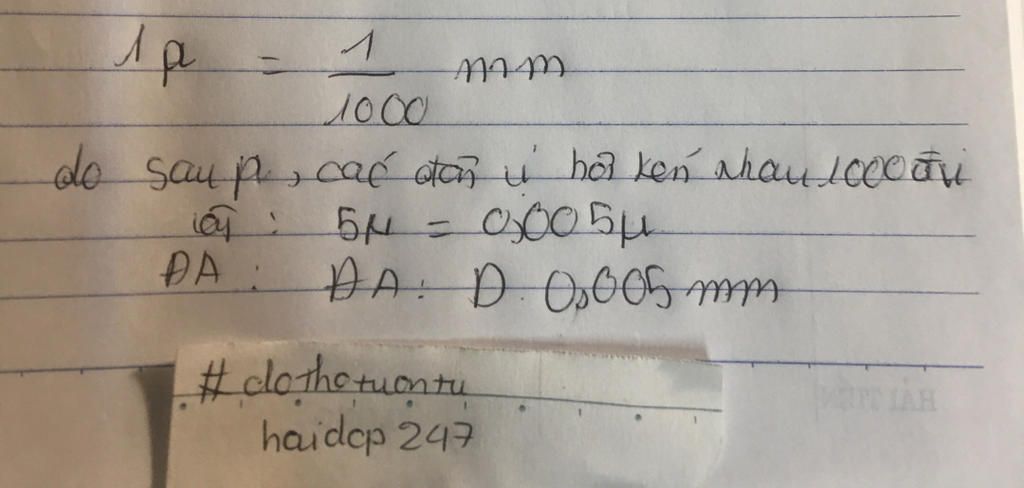 1µ = 1/1000 mm
do sau µ, các đơn vị hơn kén nhau 1000 đvi
vậy : 5µ = 0,005µ
ĐA : ĐA : D. 0,005 mm
#dothotuontu
haidcp 247
HẢI TIẾN